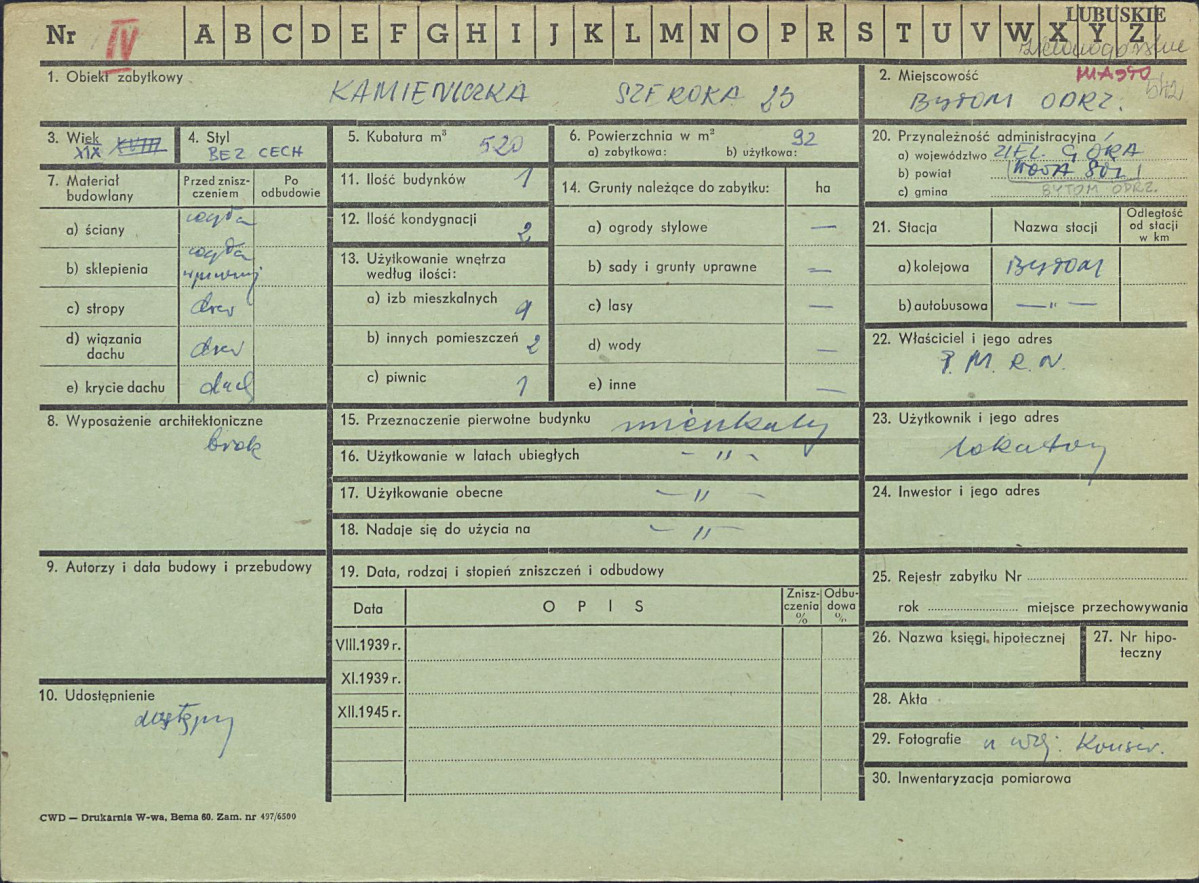 LUBUSKIE
Nr IV A B C D E F G H I J K L M N O P R S T U V W X Y Z
zielonogórskie
MIASTO
542
1. Obiekt zabytkowy
KAMIENICZKA SZEROKA 25
2. Miejscowość
BYTOM ODRZ.
3. Wiek
XIX XVIII
4. Styl
BEZ CECH
5. Kubatura m³ 520
6. Powierzchnia w m² 92
a) zabytkowa: b) użytkowa:
20. Przynależność administracyjna
a) województwo ZIEL. GÓRA
b) powiat NOWA SÓL
c) gmina BYTOM ODRZ.
7. Materiał budowlany
Przed znisz-
czeniem
Po
odbudowie
a) ściany cegła
b) sklepienia cegła
c) stropy drew
d) wiązania
dachu drew
e) krycie dachu dach
11. Ilość budynków 1
12. Ilość kondygnacji 2
13. Użytkowanie wnętrza
według ilości:
a) izb mieszkalnych 9
b) innych pomieszczeń 2
c) piwnic 1
14. Grunty należące do zabytku: ha
a) ogrody stylowe —
b) sady i grunty uprawne —
c) lasy —
d) wody —
e) inne —
21. Stacja Nazwa stacji
Odległość
od stacji
w km
a) kolejowa BYTOM
b) autobusowa — " —
22. Właściciel i jego adres
P. M. R. N.
8. Wyposażenie architektoniczne
brak
15. Przeznaczenie pierwotne budynku mieszkalny
16. Użytkowanie w latach ubiegłych - " -
17. Użytkowanie obecne - " -
18. Nadaje się do użycia na - " -
23. Użytkownik i jego adres
lokatorzy
24. Inwestor i jego adres
9. Autorzy i data budowy i przebudowy
19. Data, rodzaj i stopień zniszczeń i odbudowy
Data OPIS
Znisz-
czenia
%
Odbu-
dowa
%
VIII.1939 r.
XI.1939 r.
XII.1945 r.
25. Rejestr zabytku Nr
rok miejsce przechowywania
26. Nazwa księgi hipotecznej
27. Nr hipo-
teczny
10. Udostępnienie
dostępny
28. Akta
29. Fotografie u woj. Konser.
30. Inwentaryzacja pomiarowa
CWD — Drukarnia W-wa, Bema 60. Zam. nr 497/6500